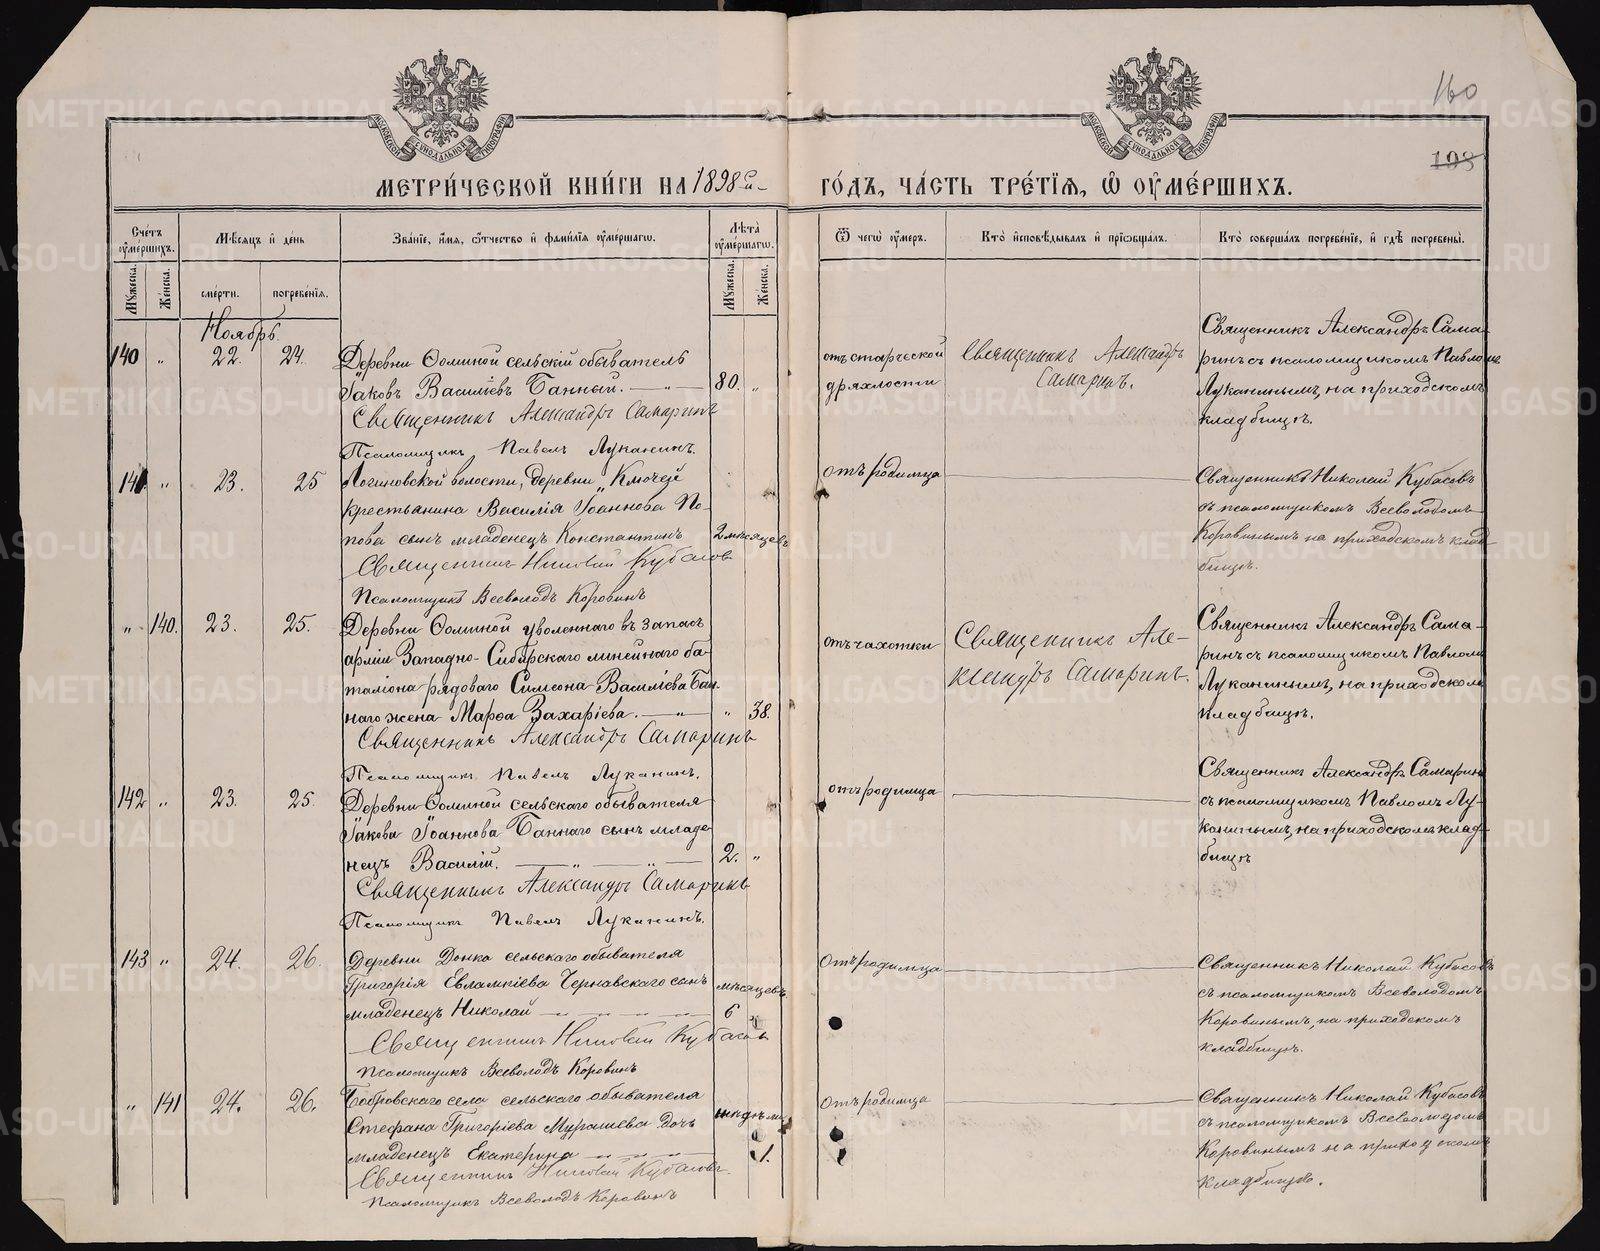 160
193
МЕТРИ́ЧЕСКОЙ КНИ́ГИ НА 1898й ГО́ДЪ, ЧА́СТЬ ТРЕ́ТЇѦ, Ѽ ОУ҆МЕ́РШИХЪ.
МОСКОВСКОЙ СѴНОДАЛЬНОЙ ТИПОГРАФІИ
МОСКОВСКОЙ СѴНОДАЛЬНОЙ ТИПОГРАФІИ
Сче́тъ оу҆ме́ршихъ.
Мꙋ́жеска. Же́нска.
Мѣ́сѧцъ и҆ де́нь
сме́рти. погребе́нїѧ.
Зва́нїе, и҆́мѧ, ѻ҆́тчество и҆ фами́лїѧ оу҆ме́ршагѡ.
Лѣ́та оу҆ме́ршагѡ.
Мꙋ́жеска. Же́нска.
Ѿ чегѡ̀ оу҆́меръ.
Кто̀ и҆сповѣ́дывалъ и҆ прїѡбща́лъ.
Кто̀ соверша́лъ погребе́нїе, и҆ гдѣ̀ погребены̀.
Ноябрь.
140 " 22. 24.
Деревни Ѳоминой сельскій обыватель
Іаковъ Василіевъ Банный. — " — 80. "
Священникъ Александръ Самаринъ
Псаломщикъ Павелъ Луканинъ.
отъ старческой
дряхлости
Священникъ Александръ
Самаринъ.
Священникъ Александръ Сама-
ринъ съ псаломщикомъ Павломъ
Луканинымъ, на приходскомъ
кладбищѣ.
141. " 23. 25
Логиновской волости, деревни Ключей
крестьянина Василія Іоаннова По-
пова сынъ младенецъ Константинъ 2 мѣсяцевъ
Священникъ Николай Кубасовъ
Псаломщикъ Всеволодъ Коровинъ
отъ родимца
Священникъ Николай Кубасовъ
съ псаломщикомъ Всеволодомъ
Коровинымъ на приходскомъ клад-
бищѣ.
" 140. 23. 25.
Деревни Ѳоминой уволеннаго въ запасъ
арміи Западно-Сибирскаго линейнаго ба-
таліона рядоваго Симеона Василіева Бан-
наго жена Марѳа Захаріева. — " — " 38.
Священникъ Александръ Самаринъ
Псаломщикъ Павелъ Луканинъ.
отъ чахотки
Священникъ Але-
ксандръ Самаринъ.
Священникъ Александръ Сама-
ринъ съ псаломщикомъ Павломъ
Луканинымъ, на приходскомъ
кладбищѣ.
142 " 23. 25.
Деревни Ѳоминой сельскаго обывателя
Іакова Іоаннова Баннаго сынъ младе-
нецъ Василій. — " — " — 2. "
Священникъ Александръ Самаринъ
Псаломщикъ Павелъ Луканинъ.
отъ родимца
Священникъ Александръ Самаринъ
съ псаломщикомъ Павломъ Лу-
канинымъ, на приходскомъ клад-
бищѣ
143 " 24. 26.
Деревни Донка сельскаго обывателя
Григорія Евлампіева Чернавскаго сынъ мѣсяцевъ
младенецъ Николай — " — " — " — 6 "
Священникъ Николай Кубасовъ
Псаломщикъ Всеволодъ Коровинъ
Отъ родимца
Священникъ Николай Кубасовъ
съ псаломщикомъ Всеволодомъ
Коровинымъ, на приходскомъ
кладбищѣ.
" 141 24. 26.
Бобровскаго села сельскаго обывателя
Стефана Григоріева Мурашева дочь
младенецъ Екатерина — " — " — 1.
Священникъ Николай Кубасовъ
Псаломщикъ Всеволодъ Коровинъ
Отъ родимца
Священникъ Николай Кубасовъ
съ псаломщикомъ Всеволодомъ
Коровинымъ на приходскомъ
кладбищѣ.
METRIKI.GASO-URAL.RU